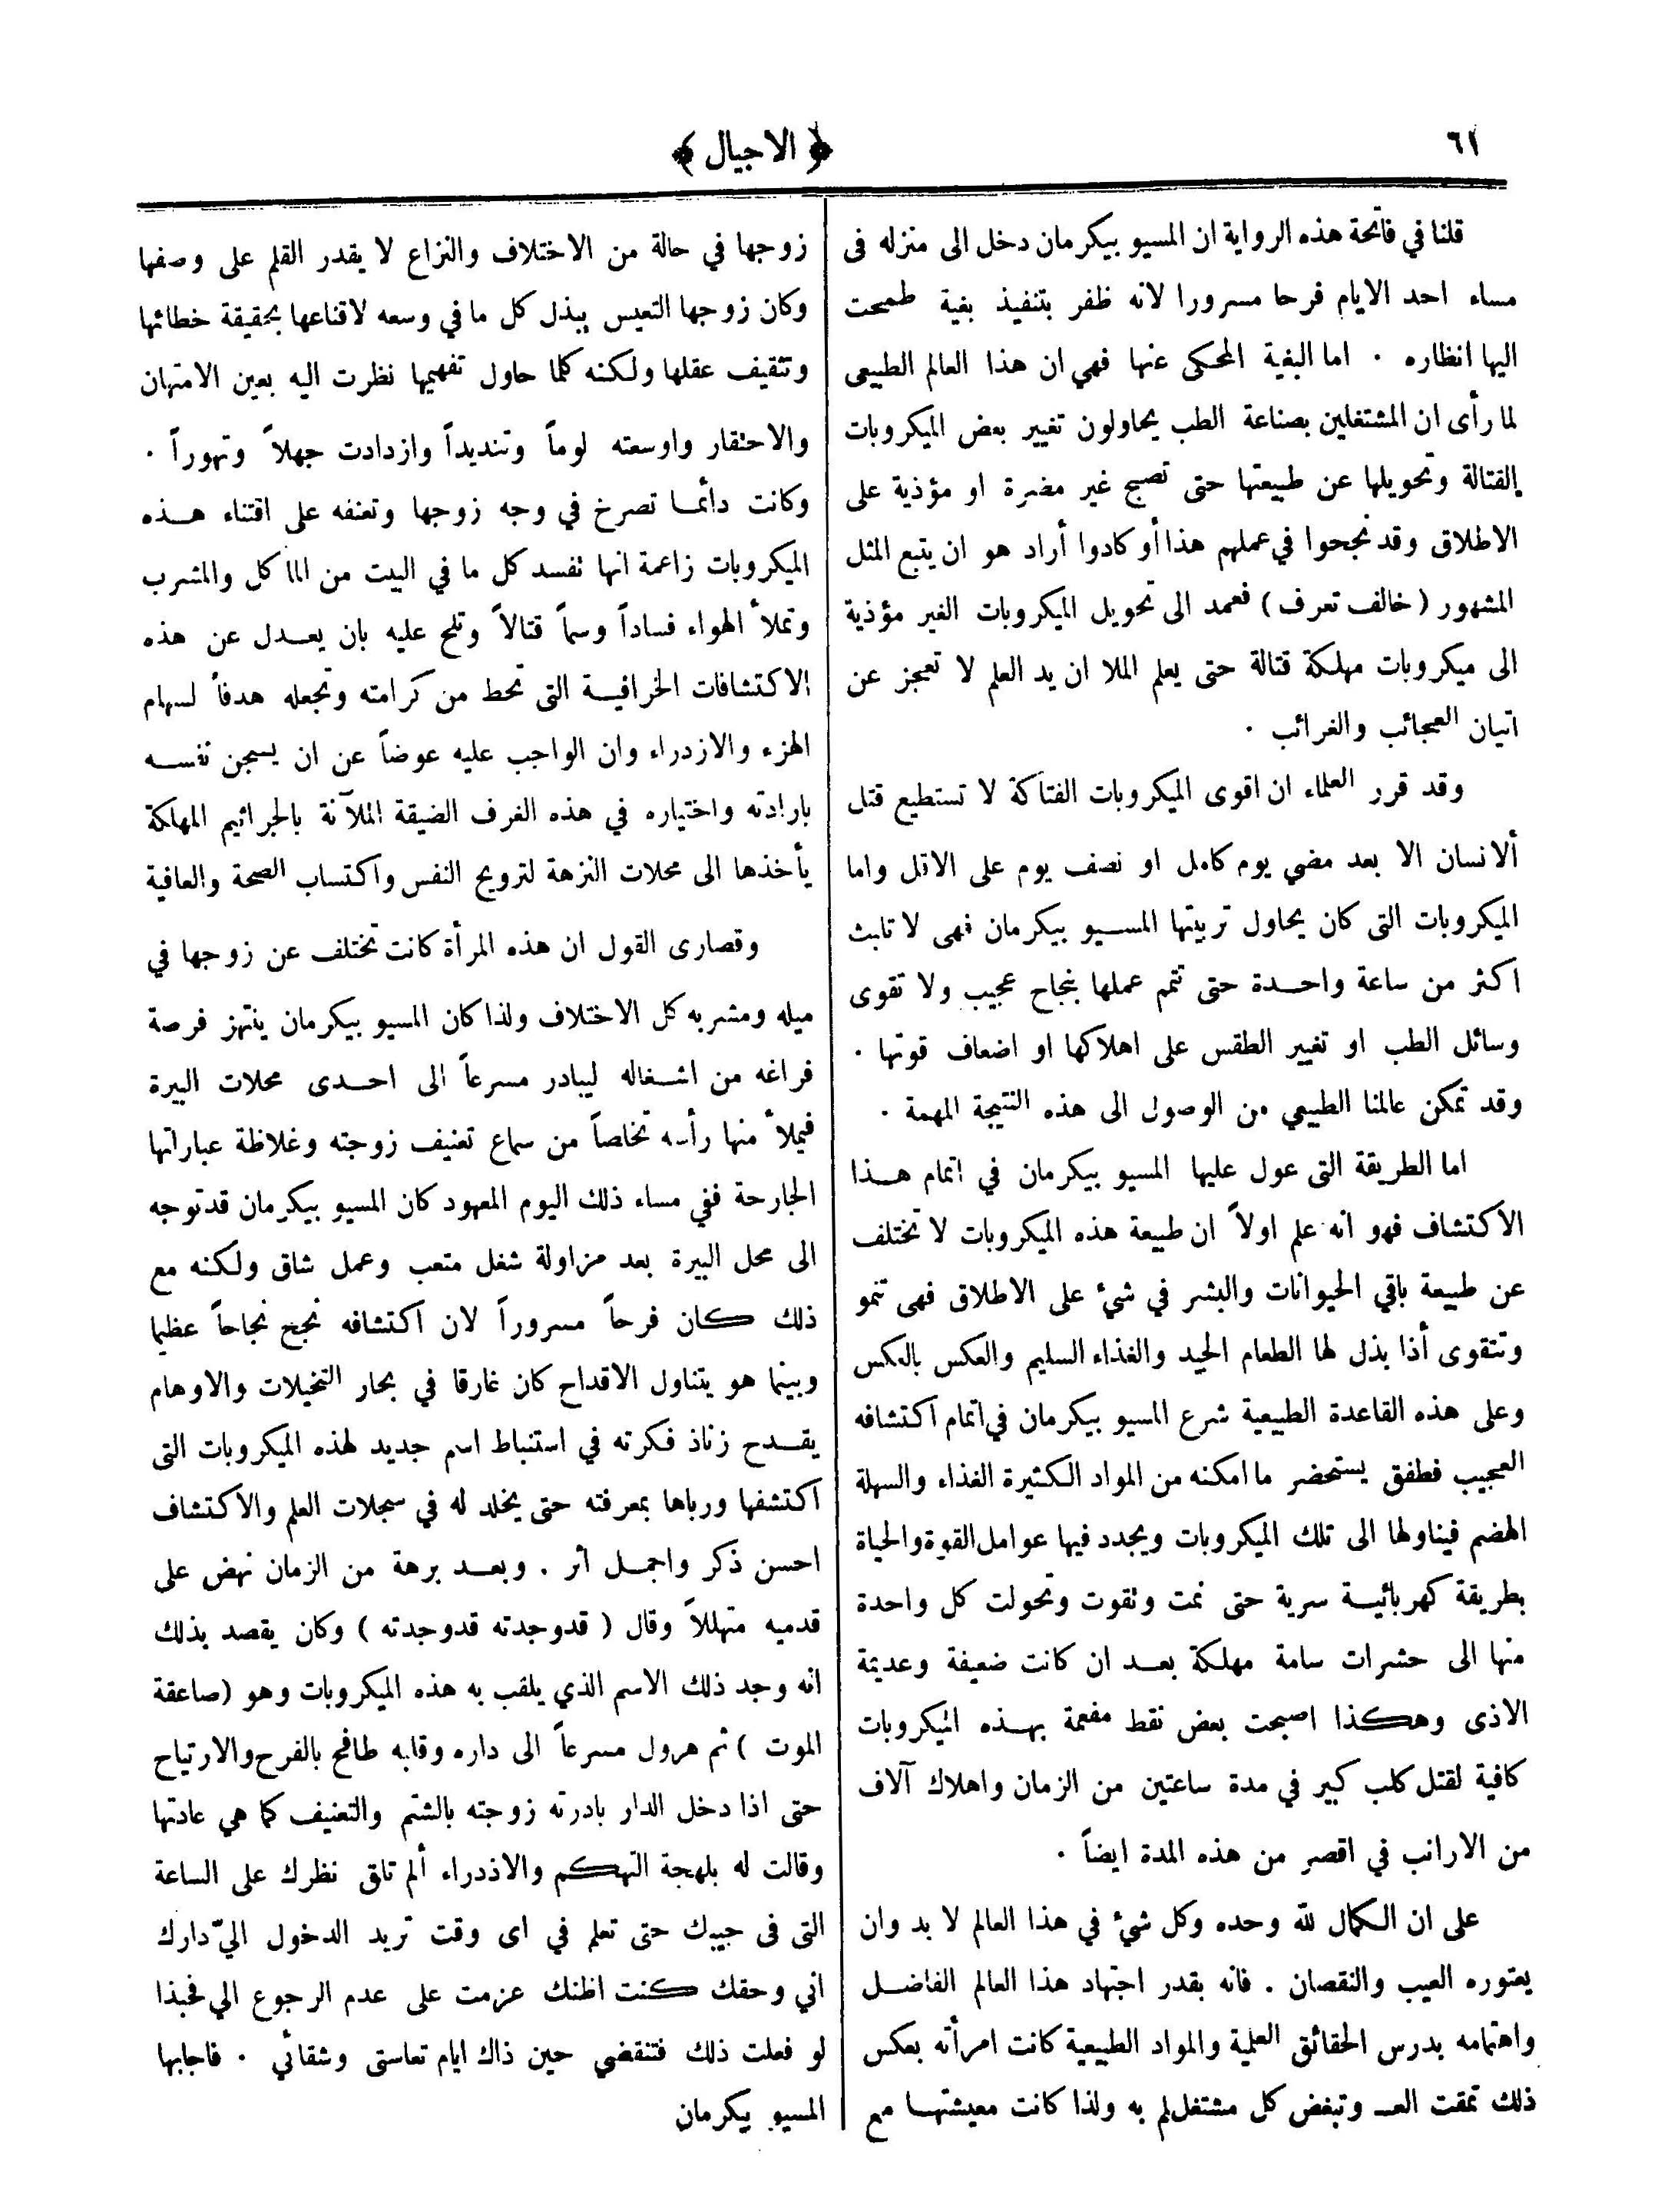 ٦١
﴿ الاجيال ﴾
قلنا في فاتحة هذه الرواية ان المسيو بيكرمان دخل الى منزله فى
مساء احد الايام فرحا مسرورا لانه ظفر بتنفيذ بغية طمحت
اليها انظاره ٠ اما البغية المحكى عنها فهي ان هذا العالم الطبيعى
لما رأى ان المشتغلين بصناعة الطب يحاولون تغيير بعض الميكروبات
القتالة وتحويلها عن طبيعتها حتى تصبح غير مضرة او مؤذية على
الاطلاق وقد نجحوا في عملهم هذا أو كادوا أراد هو ان يتبع المثل
المشهور ( خالف تعرف ) فعمد الى تحويل الميكروبات الغير مؤذية
الى ميكروبات مهلكة قتالة حتى يعلم الملا ان يد العلم لا تعجز عن
اتيان العجائب والغرائب ٠
وقد قرر العلماء ان اقوى الميكروبات الفتاكة لا تستطيع قتل
ألانسان الا بعد مضي يوم كامل او نصف يوم على الاقل واما
الميكروبات التى كان يحاول تربيتها المسيو بيكرمان فهى لا تلبث
اكثر من ساعة واحدة حتى تتمم عملها بنجاح عجيب ولا تقوى
وسائل الطب او تغيير الطقس على اهلاكها او اضعاف قوتها ٠
وقد تمكن عالمنا الطبيعي من الوصول الى هذه النتيجة المهمة ٠
اما الطريقة التى عول عليها المسيو بيكرمان في اتمام هذا
الاكتشاف فهو انه علم اولاً ان طبيعة هذه الميكروبات لا تختلف
عن طبيعة باقي الحيوانات والبشر في شئ على الاطلاق فهى تنمو
وتتقوى أذا بذل لها الطعام الجيد والغذاء السليم والعكس بالعكس
وعلى هذه القاعدة الطبيعية شرع المسيو بيكرمان في اتمام اكتشافه
العجيب فطفق يستحضر ما امكنه من المواد الكثيرة الغذاء والسهلة
الهضم فيناولها الى تلك الميكروبات ويجدد فيها عوامل القوة والحياة
بطريقة كهربائية سرية حتى نمت وتقوت وتحولت كل واحدة
منها الى حشرات سامة مهلكة بعد ان كانت ضعيفة وعديمة
الاذى وهكذا اصبحت بعض نقط مفعمة بهذه الميكروبات
كافية لقتل كلب كبير في مدة ساعتين من الزمان واهلاك آلاف
من الارانب في اقصر من هذه المدة ايضاً ٠
على ان الكمال لله وحده وكل شئ في هذا العالم لا بد وان
يعتوره العيب والنقصان . فانه بقدر اجتهاد هذا العالم الفاضل
واهتمامه بدرس الحقائق العلمية والمواد الطبيعية كانت امرأته بعكس
ذلك تمقت العـ وتبغض كل مشتغل لم به ولذا كانت معيشتها مع
زوجها في حالة من الاختلاف والنزاع لا يقدر القلم على وصفها
وكان زوجها التعيس يبذل كل ما في وسعه لاقناعها بحقيقة خطائها
وتثقيف عقلها ولكنه كلما حاول تفهيمها نظرت اليه بعين الامتهان
والاحتقار واوسعته لوماً وتنديداً وازدادت جهلاً وتهوراً ٠
وكانت دائما تصرخ في وجه زوجها وتعنفه على اقتناء هذه
الميكروبات زاعمة انها تفسد كل ما في البيت من الماكل والمشرب
وتملأ الهواء فساداً وسماً قتالاً وتلح عليه بان يعدل عن هذه
الاكتشافات الخرافية التى تحط من كرامته وتجعله هدفاً لسهام
الهزء والازدراء وان الواجب عليه عوضاً عن ان يسجن نفسه
بارادته واختياره في هذه الغرف الضيقة الملآنة بالجراثيم المهلكة
يأخذها الى محلات النزهة لترويح النفس واكتساب الصحة والعافية
وقصارى القول ان هذه المرأة كانت تختلف عن زوجها في
ميله ومشربه كل الاختلاف ولذا كان المسيو بيكرمان ينتهز فرصة
فراغه من اشغاله ليبادر مسرعاً الى احدى محلات البيرة
فيملأ منها رأسه تخلصاً من سماع تعنيف زوجته وغلاظة عباراتها
الجارحة ففي مساء ذلك اليوم المعهود كان المسيو بيكرمان قد توجه
الى محل البيرة بعد مزاولة شغل متعب وعمل شاق ولكنه مع
ذلك كان فرحاً مسروراً لان اكتشافه نجح نجاحاً عظيما
وبينما هو يتناول الاقداح كان غارقا في بحار التخيلات والاوهام
يقدح زناد فكرته في استنباط اسم جديد لهذه الميكروبات التى
اكتشفها ورباها بمعرفته حتى يخلد له في سجلات العلم والاكتشاف
احسن ذكر واجمل اثر . وبعد برهة من الزمان نهض على
قدميه متهللاً وقال ( قد وجدته قد وجدته ) وكان يقصد بذلك
انه وجد ذلك الاسم الذي يلقب به هذه الميكروبات وهو (صاعقة
الموت ) ثم هرول مسرعاً الى داره وقلبه طافح بالفرح والارتياح
حتى اذا دخل الدار بادرته زوجته بالشتم والتعنيف كما هي عادتها
وقالت له بلهجة التهكم والاذدراء ألم تلق نظرك على الساعة
التى فى جيبك حتى تعلم في اى وقت تريد الدخول اليّ دارك
اني وحقك كنت اظنك عزمت على عدم الرجوع الي فحبذا
لو فعلت ذلك فتنقضي حين ذاك ايام تعاستى وشقائي ٠ فاجابها
المسيو بيكرمان